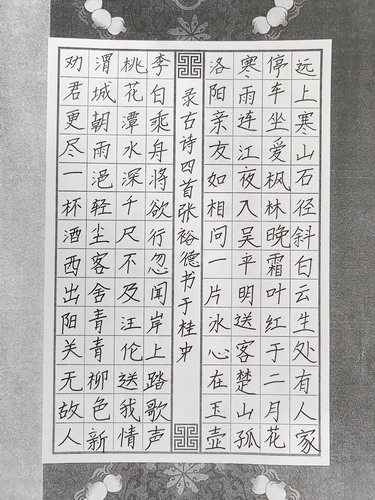 远上寒山石径斜白云生处有人家
停车坐爱枫林晚霜叶红于二月花
寒雨连江夜入吴平明送客楚山孤
洛阳亲友如相问一片冰心在玉壶
录古诗四首张裕德书于桂中
李白乘舟将欲行忽闻岸上踏歌声
桃花潭水深千尺不及汪伦送我情
渭城朝雨浥轻尘客舍青青柳色新
劝君更尽一杯酒西出阳关无故人